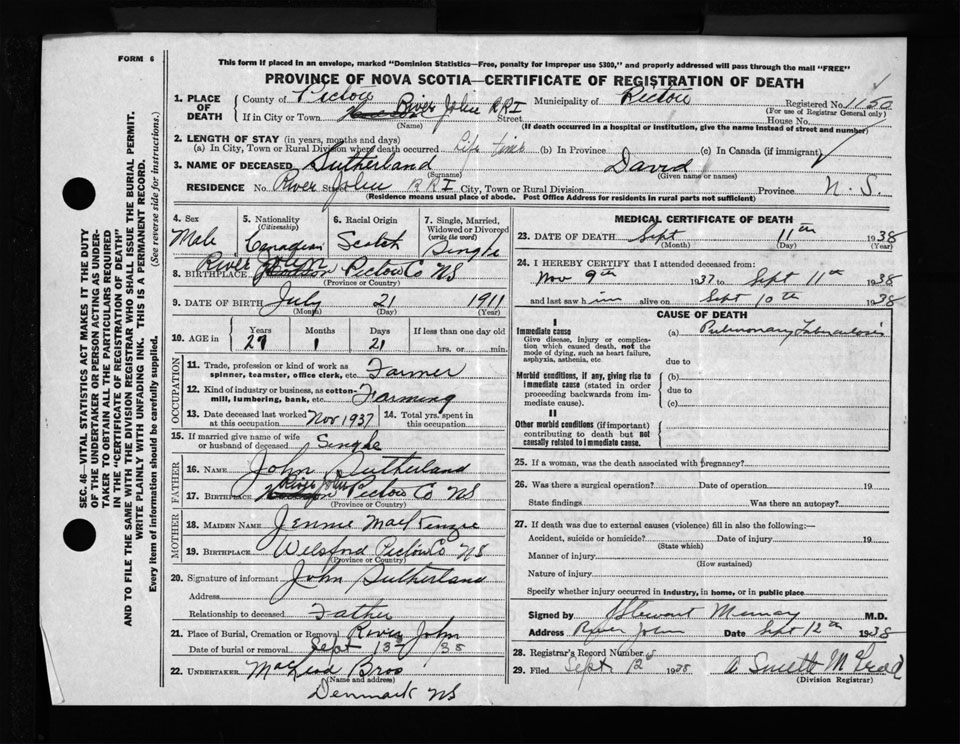 FORM 6
This form if placed in an envelope, marked "Dominion Statistics—Free, penalty for improper use $300," and properly addressed will pass through the mail "FREE"
PROVINCE OF NOVA SCOTIA—CERTIFICATE OF REGISTRATION OF DEATH
1. PLACE OF DEATH
County of Pictou Municipality of Pictou Registered No. 1150
(For use of Registrar General only)
If in City or Town River John RR1 Street House No.
(Name) (If death occurred in a hospital or institution, give the name instead of street and number)
2. LENGTH OF STAY (in years, months and days)
(a) In City, Town or Rural Division where death occurred Life time (b) In Province (c) In Canada (if immigrant)
3. NAME OF DECEASED Sutherland David
(Surname) (Given name or names)
RESIDENCE No. River Street John RR1 City, Town or Rural Division Province N.S.
(Residence means usual place of abode. Post Office Address for residents in rural parts not sufficient)
4. Sex Male
5. Nationality (Citizenship) Canadian
6. Racial Origin Scotch
7. Single, Married, Widowed or Divorced (write the word) Single
8. BIRTHPLACE River John Pictou Co NS
(Province or Country)
9. DATE OF BIRTH July 21 1911
(Month) (Day) (Year)
10. AGE in Years 27 Months 1 Days 21 If less than one day old hrs. or min.
OCCUPATION
11. Trade, profession or kind of work as spinner, teamster, office clerk, etc. Farmer
12. Kind of industry or business, as cotton-mill, lumbering, bank, etc. Farming
13. Date deceased last worked at this occupation Nov 1937 14. Total yrs. spent in this occupation
15. If married give name of wife or husband of deceased Single
FATHER
16. NAME John Sutherland
17. BIRTHPLACE River John Pictou Co NS
(Province or Country)
MOTHER
18. MAIDEN NAME Jennie MacKenzie
19. BIRTHPLACE Welsford Pictou Co NS
(Province or Country)
20. Signature of informant John Sutherland
Address
Relationship to deceased Father
21. Place of Burial, Cremation or Removal River John
Date of burial or removal Sept 13 1938
22. UNDERTAKER MacLeod Bros
(Name and address)
Denmark NS
MEDICAL CERTIFICATE OF DEATH
23. DATE OF DEATH Sept 11th 1938
(Month) (Day) (Year)
24. I HEREBY CERTIFY that I attended deceased from:
Nov 9th 1937 to Sept 11th 1938
and last saw him alive on Sept 10th 1938
CAUSE OF DEATH
I
Immediate cause
Give disease, injury or complication which caused death, not the mode of dying, such as heart failure, asphyxia, asthenia, etc.
(a) Pulmonary Tuberculosis
due to
Morbid conditions, if any, giving rise to immediate cause (stated in order proceeding backwards from immediate cause).
(b)
due to
(c)
II
Other morbid conditions (if important) contributing to death but not causally related to immediate cause.
25. If a woman, was the death associated with pregnancy?
26. Was there a surgical operation? Date of operation 19
State findings Was there an autopsy?
27. If death was due to external causes (violence) fill in also the following:—
Accident, suicide or homicide? Date of injury 19
(State which)
Manner of injury
(How sustained)
Nature of injury
Specify whether injury occurred in industry, in home, or in public place
Signed by J Stewart Murray M.D.
Address River John Date Sept 12th 1938
28. Registrar's Record Number
29. Filed Sept 12 1938
(Division Registrar)
SEC. 46—VITAL STATISTICS ACT MAKES IT THE DUTY
OF THE UNDERTAKER OR PERSON ACTING AS UNDER-
TAKER TO OBTAIN ALL THE PARTICULARS REQUIRED
IN THE "CERTIFICATE OF REGISTRATION OF DEATH"
AND TO FILE THE SAME WITH THE DIVISION REGISTRAR WHO SHALL ISSUE THE BURIAL PERMIT.
WRITE PLAINLY WITH UNFADING INK. THIS IS A PERMANENT RECORD.
Every item of information should be carefully supplied. (See reverse side for instructions.)